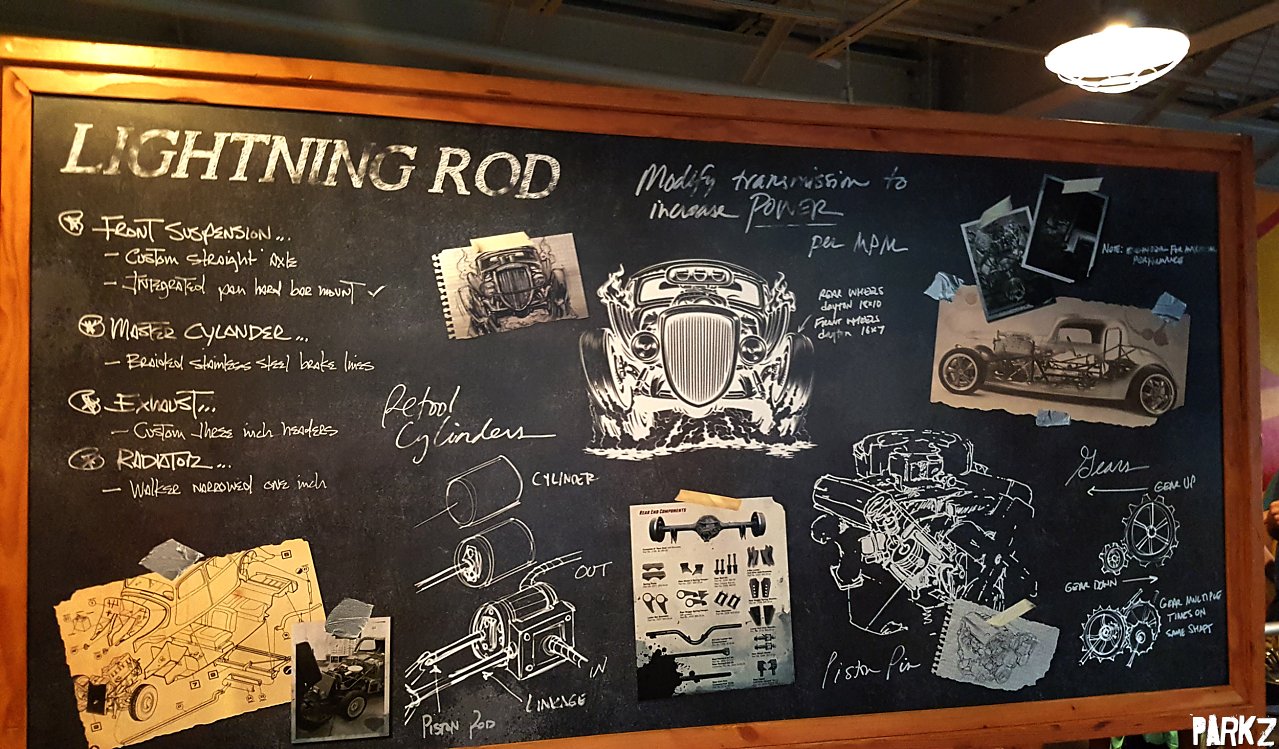 LIGHTNING ROD
FRONT SUSPENSION...
- CUSTOM STRAIGHT AXLE
- INTEGRATED pan hard bar mount ✓
MASTER CYLANDER...
- BRAIDED STAINLESS STEEL brake lines
EXHAUST...
- CUSTOM three inch headers
RADIATOR...
- WALKER NARROWED ONE inch
Modify transmission to
increase POWER
per MPM
REAR WHEELS
dayton 18x10
FRONT WHEELS
dayton 16x7
NOTE:
FOR
PERFORMANCE
Retool
Cylinders
CYLINDER
OUT
IN
LINKAGE
PISTON ROD
REAR END COMPONENTS
Piston Pin
Gears
GEAR UP
GEAR DOWN
GEAR MULTIPLE
TINES ON
SAME SHAFT
PARKZ